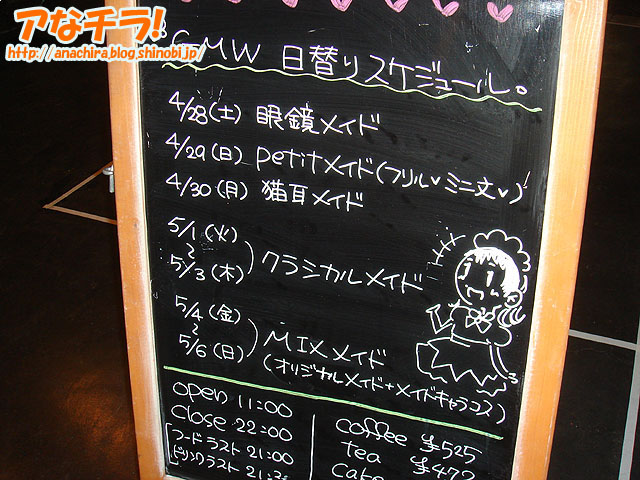 アなチラ!
http://anachira.blog.shinobi.jp/
GMW 日替りスケジュール。
4/28(土) 眼鏡メイド
4/29(日) Petitメイド(フリル♥ミニ丈♥)
4/30(月) 猫耳メイド
5/1(火)
~
5/3(木)
)クラシカルメイド
5/4(金)
~
5/6(日)
)MIXメイド
(オリジナルメイド+メイドキャラコス)
open 11:00
close 22:00
フードラスト 21:00
ドリンクラスト 21:
coffee ¥525
tea ¥472